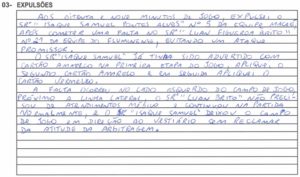 03- EXPULSÕES
AOS OITENTA E NOVE MINUTOS DE JOGO, EXPULSEI O
SR° "ISAQUE SAMUEL PONTES ALVES" N° 5 DA EQUIPE
APÓS COMETER UMA FALTA NO SR° "LUAN FIGUEROA BRITO"
N° 21 DA EQUIPE DO FLUMINENSE, EVITANDO UM ATAQUE
PROMISSOR.
O SR° "ISAQUE SAMUEL" JÁ TINHA SIDO ADVERTIDO COM
CARTÃO AMARELO NA PRIMEIRA ETAPA DO JOGO APLIQUEI O
SEGUNDO CARTÃO AMARELO E EM SEGUIDA APLIQUEI O
CARTÃO VERMELHO.
A FALTA OCORREU NO LADO ESQUERDO DO CAMPO DE JOGO,
PRÓXIMO A LINHA LATERAL, O SR° "LUAN BRITO" NÃO PRECI-
SOU DE ATENDIMENTO MÉDICO E CONTINUOU NA PARTIDA
NORMALMENTE, E O SR° "ISAQUE SAMUEL" DEIXOU O CAMPO
DE JOGO EM DIREÇÃO AO VESTIÁRIO SEM RECLAMAR
DA ATITUDE DA ARBITRAGEM.